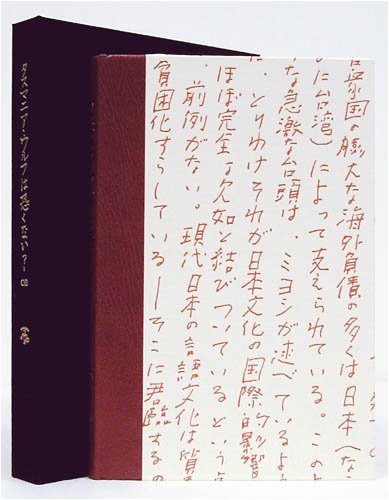 合衆国の膨大な海外負債の多くは日本（な
に台湾）によって支えられている。このよ
な急激な台頭は、ミヨシが述べているよ
、とりわけそれが日本文化の国際的影響
ほぼ完全な欠如と結びついているという
、前例がない。現代日本の言語文化は質
貧困化すらしている—そこに君臨するの
タスマニア・ウルフは恐くない？